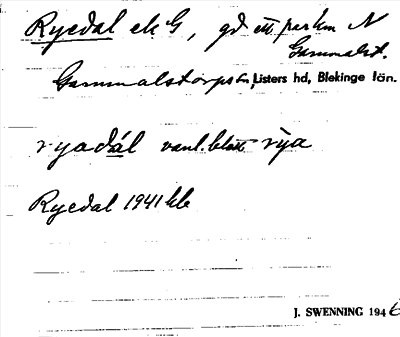 Ryedal ek G, gd ett par km N
Gammalst.
Gammalstorps sn, Listers hd, Blekinge län.
ryadál vanl. blott rya
Ryedal 1941 kb
J. SWENNING 1946